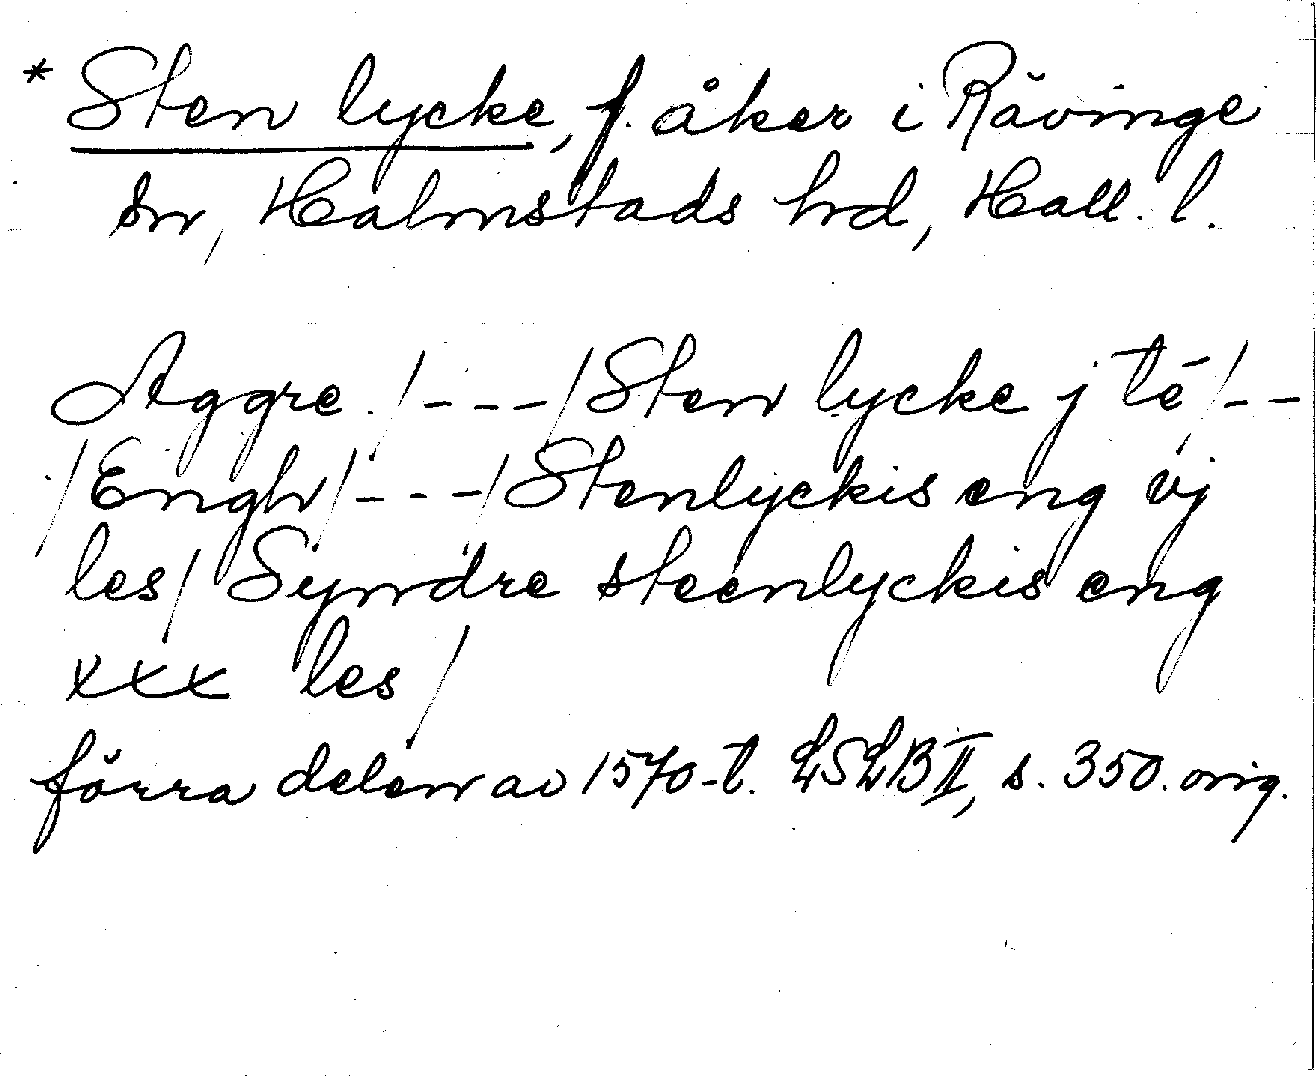 * Sten lycke, f. åker i Rävinge
sn, Halmstads hd, Hall. l.
Aggre /---/ Sten lycke j té /--
/ Engh /---/ Stenlyckis eng vj
les / Syndre steenlyckis eng
xxx les /
förra delen av 1570-t. LSLB II, s. 350. orig.